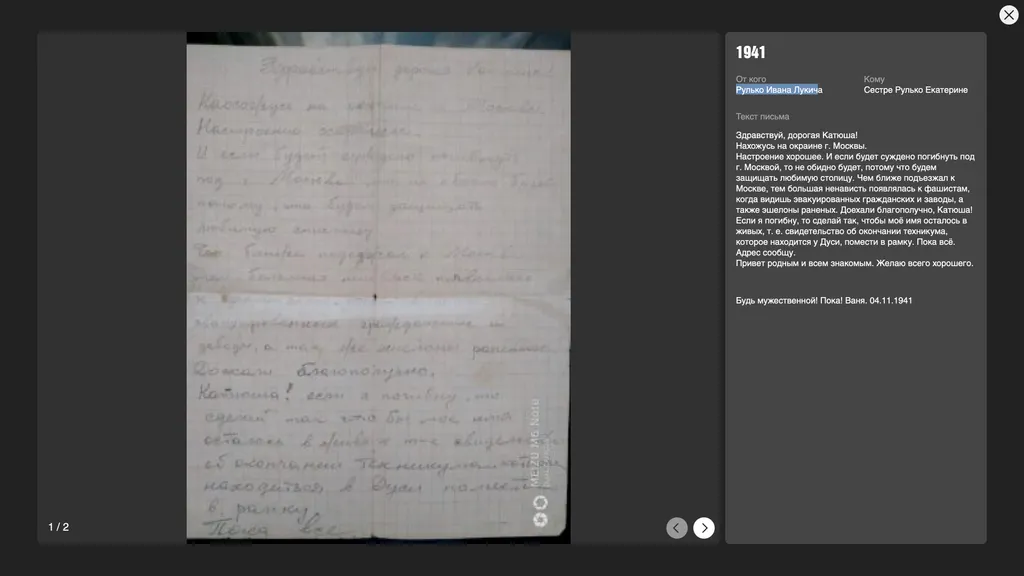 Здравствуй, дорогая Катюша!
Нахожусь на окраине г. Москвы.
Настроение хорошее.
И если будет суждено погибнуть
под г. Москвой, то не обидно будет,
потому, что будем защищать
любимую столицу.
Чем ближе подъезжал к Москве
тем большая
к
эвакуированных гражданских и
заводы, а так же эшелоны раненых.
Доехали благополучно.
Катюша! если я погибну, то
сделай так что бы мое имя
осталось в живых т.е. свидетельство
об окончании техникума, которое
находиться в Дуси помести
в рамку.
Пока все.
MEIZU M5 Note
1 / 2
1941
От кого
Рулько Ивана Лукича
Кому
Сестре Рулько Екатерине
Текст письма
Здравствуй, дорогая Катюша!
Нахожусь на окраине г. Москвы.
Настроение хорошее. И если будет суждено погибнуть под
г. Москвой, то не обидно будет, потому что будем
защищать любимую столицу. Чем ближе подъезжал к
Москве, тем большая ненависть появлялась к фашистам,
когда видишь эвакуированных гражданских и заводы, а
также эшелоны раненых. Доехали благополучно, Катюша!
Если я погибну, то сделай так, чтобы моё имя осталось в
живых, т. е. свидетельство об окончании техникума,
которое находится у Дуси, помести в рамку. Пока всё.
Адрес сообщу.
Привет родным и всем знакомым. Желаю всего хорошего.
Будь мужественной! Пока! Ваня. 04.11.1941